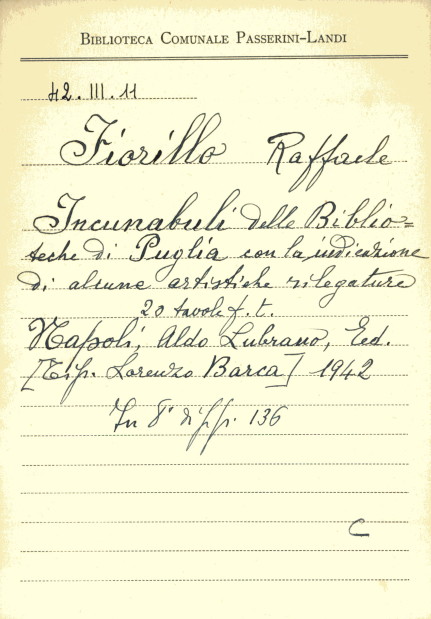 BIBLIOTECA COMUNALE PASSERINI-LANDI
42.III.11
Fiorillo Raffaele
Incunabuli delle Biblio=
teche di Puglia con la indicazione
di alcune artistiche rilegature
20 tavole f. t.
Napoli, Aldo Lubrano, Ed.
[Tip. Lorenzo Barca] 1942
In 8° di pp. 136
C